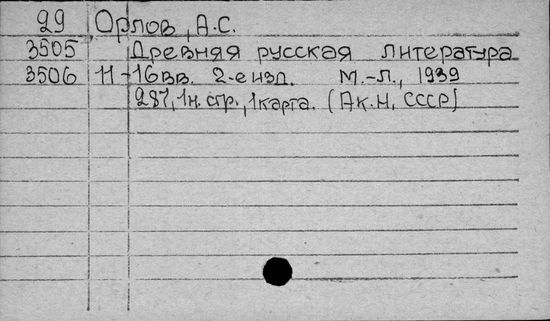 99 Орлов, А.С.
3505 Древняя русская литература
3506 11-16вв. 2-е изд. М.-Л., 1939
287, 1н. стр., 1 карта. (Ак.Н, СССР)